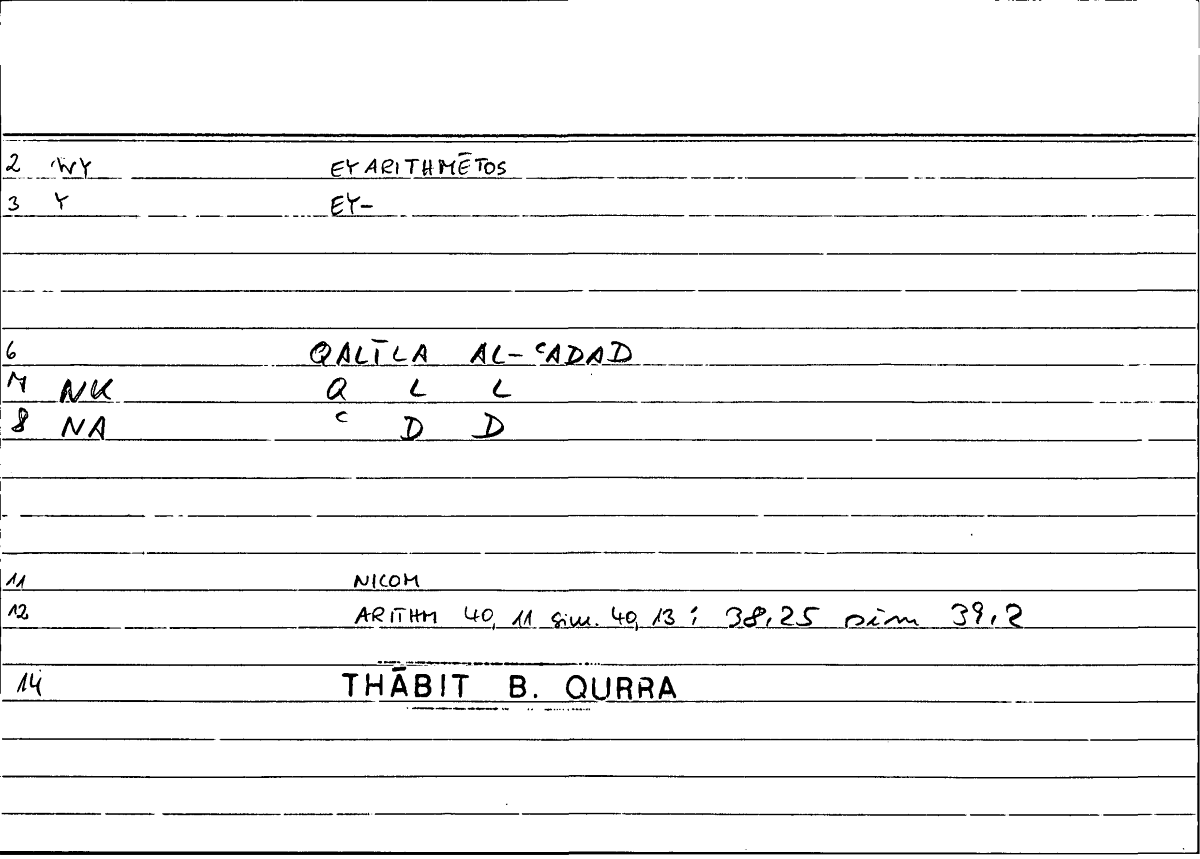 2 WY EYARITHMĒTOS
3 Y EY-
6 QALĪLA AL-ᶜADAD
7 NK Q L L
8 NA ᶜ D D
11 NICOM
12 ARITHM 40, 11 sim. 40, 13 ; 38,25 sim 39,2
14 THĀBIT B. QURRA